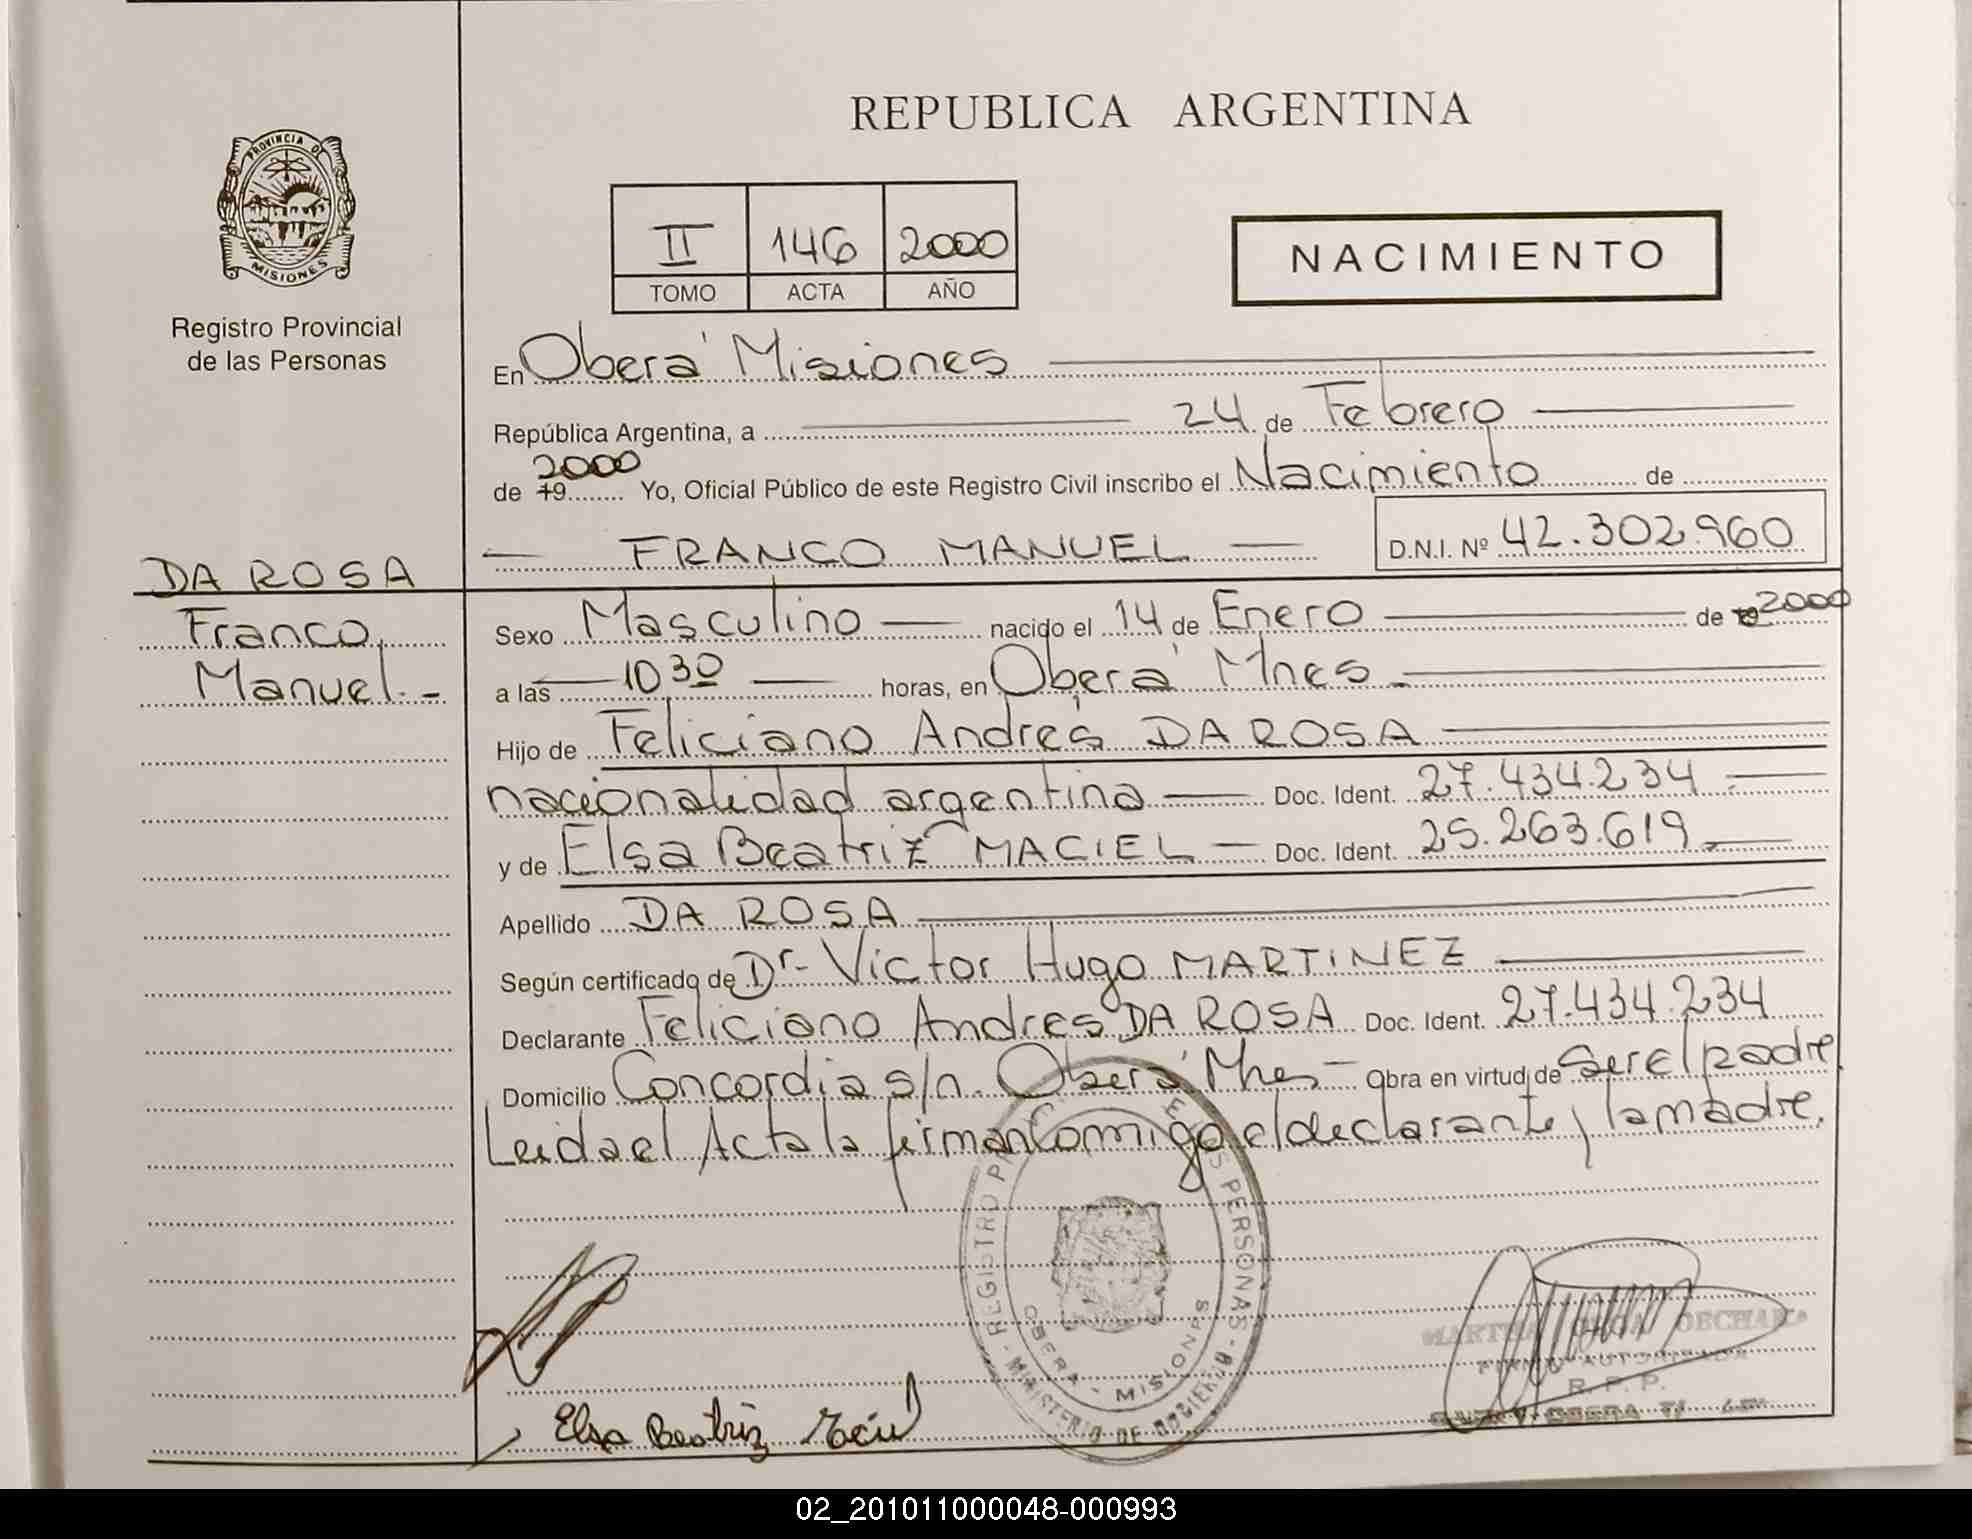 REPUBLICA ARGENTINA
PROVINCIA DE
MISIONES
Registro Provincial
de las Personas
II 146 2000
TOMO ACTA AÑO
NACIMIENTO
En Oberá Misiones
República Argentina, a 24 de Febrero
2000
de 19 Yo, Oficial Público de este Registro Civil inscribo el Nacimiento de
FRANCO MANUEL D.N.I. Nº 42.302.960
DA ROSA
Franco
Manuel.-
Sexo Masculino nacido el 14 de Enero de 19 2000
a las 10 30 horas, en Oberá Mnes
Hijo de Feliciano Andrés DA ROSA
nacionalidad argentina Doc. Ident. 27.434.234
y de Elsa Beatriz MACIEL Doc. Ident. 25.263.619
Apellido DA ROSA
Según certificado de Dr. Victor Hugo MARTINEZ
Declarante Feliciano Andres DA ROSA Doc. Ident. 27.434.234
Domicilio Concordia s/n. Oberá Mnes Obra en virtud de ser el padre
Leida el Acta la firman comigo el declarante y la madre.
REGISTRO PERSONAS - MINISTERIO DE GOBIERNO
OBERA - MISIONES
FIRMA AUTORIZADA
R. P. P.
Elsa Beatriz
02_201011000048-000993